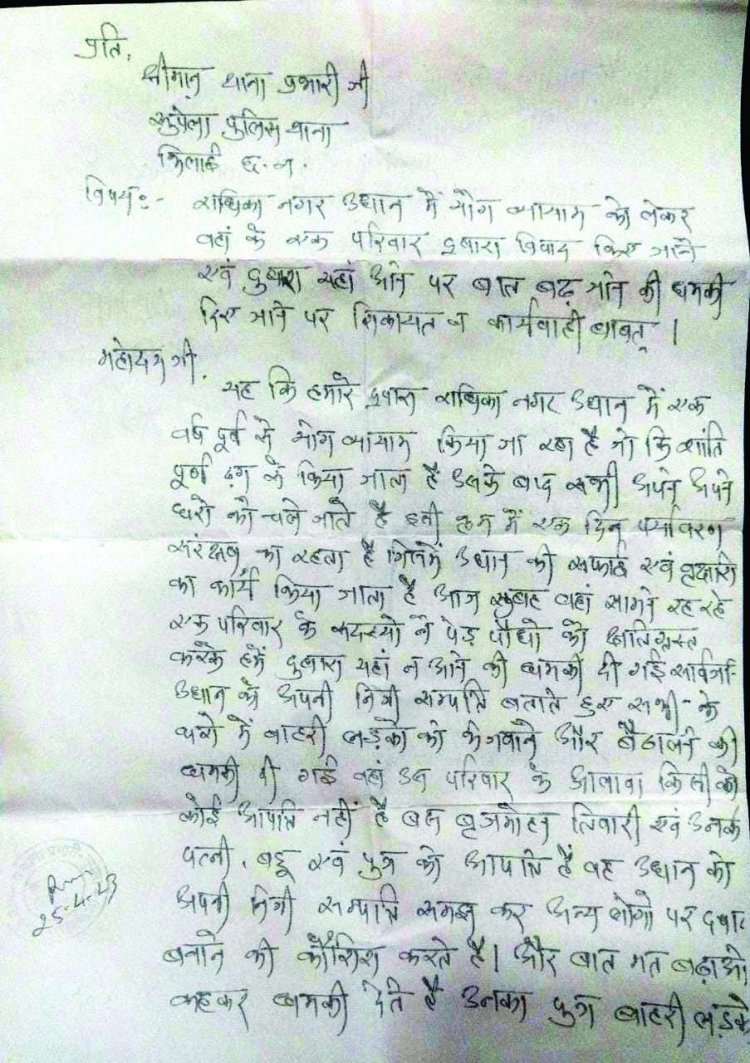 प्रति,
श्रीमान् थाना प्रभारी जी
सुपेला पुलिस थाना
भिलाई छ.ग.
विषय:- राधिका नगर उधान में योग व्यायाम को लेकर
वहां के एक परिवार द्वारा विवाद किए जाने
एवं दुबारा यहां आने पर बात बढ़ जाने की धमकी
दिए जाने पर शिकायत व कार्यवाही बाबत् ।
महोदय जी,
यह कि हमारे द्वारा राधिका नगर उधान में एक
वर्ष पूर्व से योग व्यायाम किया जा रहा है जो कि शांति
पूर्ण ढंग से किया जाता है उसके बाद सभी अपने अपने
घरों को चले जाते है इसी क्रम में एक दिन पर्यावरण
संरक्षण का रहता है जिसमें उधान की सफाई एवं वृक्षारो
का कार्य किया जाता है आज सुबह वहां सामने रह रहे
एक परिवार के सदस्यो ने पेड़ पौधो को क्षतिग्रस्त
करके हमें दुबारा यहां न आने की धमकी दी गई सार्वज
उधान को अपनी निजी सम्पत्ति बताते हुए सभी के
घरो में बाहरी लड़को को भेगवाने और बैठालने की
धमकी दी गई वहां उस परिवार के आलावा किसी को
कोई आपत्ति नहीं है बस बृजमोहन तिवारी एवं उनके
पत्नी, बहू एवं पुत्र को आपत्ति है वह उधान को
अपनी निजी सम्पत्ति समझ कर अन्य लोगो पर दबाव
बनाने की कोशिश करते है। और बात मत बढ़ाओ
कहकर धमकी देते है उनका पुत्र बाहरी लड़के
25-4-23